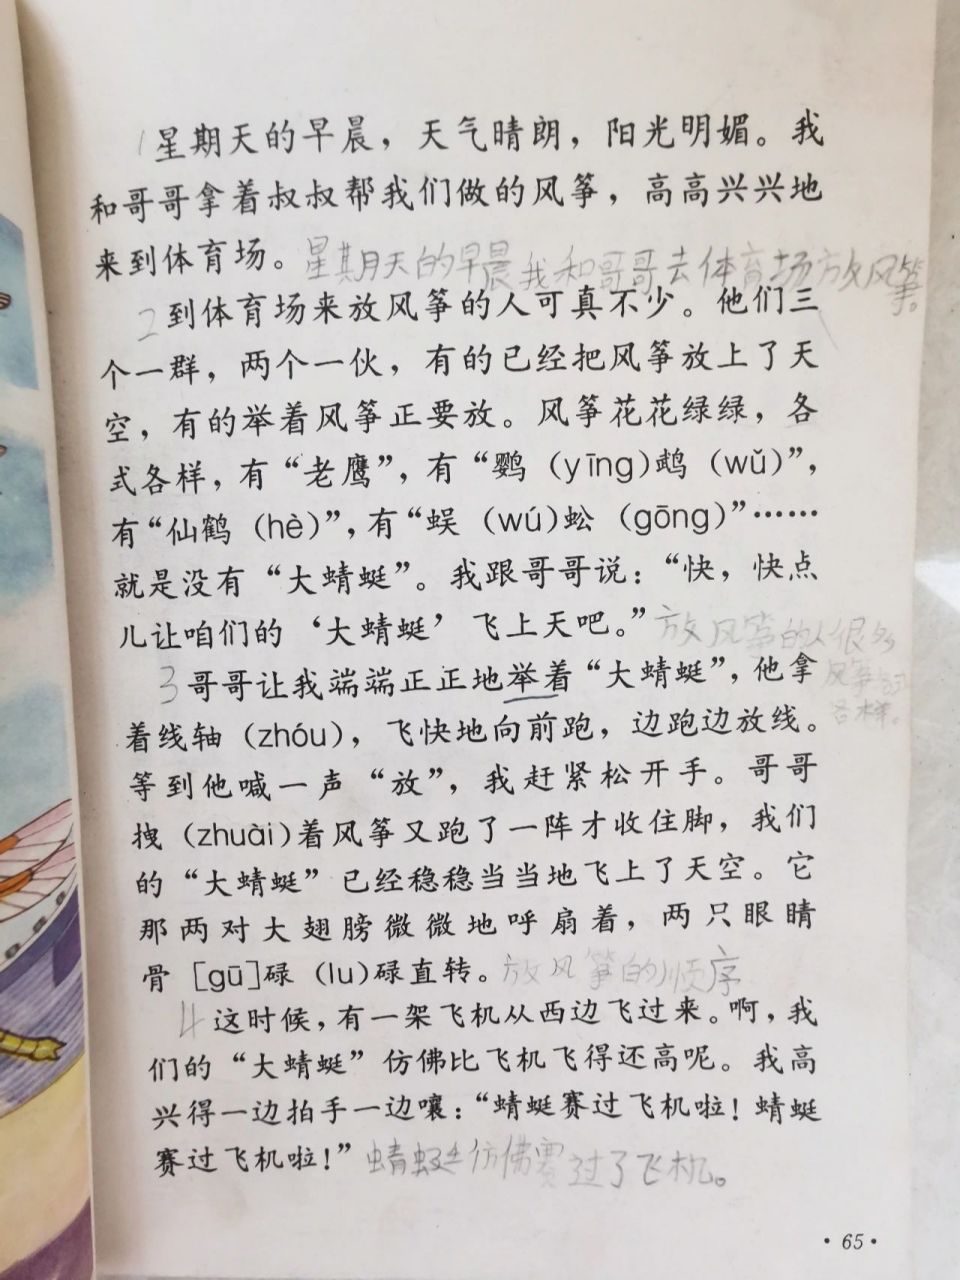 1星期天的早晨，天气晴朗，阳光明媚。我
和哥哥拿着叔叔帮我们做的风筝，高高兴兴地
来到体育场。星期天的早晨我和哥哥去体育场放风筝。
2到体育场来放风筝的人可真不少。他们三
个一群，两个一伙，有的已经把风筝放上了天
空，有的举着风筝正要放。风筝花花绿绿，各
式各样，有“老鹰”，有“鹦（yīng）鹉（wǔ）”，
有“仙鹤（hè）”，有“蜈（wú）蚣（gōng）”……
就是没有“大蜻蜓”。我跟哥哥说：“快，快点
儿让咱们的‘大蜻蜓’飞上天吧。”放风筝的人很多
风筝各式
各样。
3哥哥让我端端正正地举着“大蜻蜓”，他拿
着线轴（zhóu），飞快地向前跑，边跑边放线。
等到他喊一声“放”，我赶紧松开手。哥哥
拽（zhuài）着风筝又跑了一阵才收住脚，我们
的“大蜻蜓”已经稳稳当当地飞上了天空。它
那两对大翅膀微微地呼扇着，两只眼睛
骨［gū］碌（lu）碌直转。放风筝的顺序
4这时候，有一架飞机从西边飞过来。啊，我
们的“大蜻蜓”仿佛比飞机飞得还高呢。我高
兴得一边拍手一边嚷：“蜻蜓赛过飞机啦！蜻蜓
赛过飞机啦！”蜻蜓仿佛赛过了飞机。
·65·